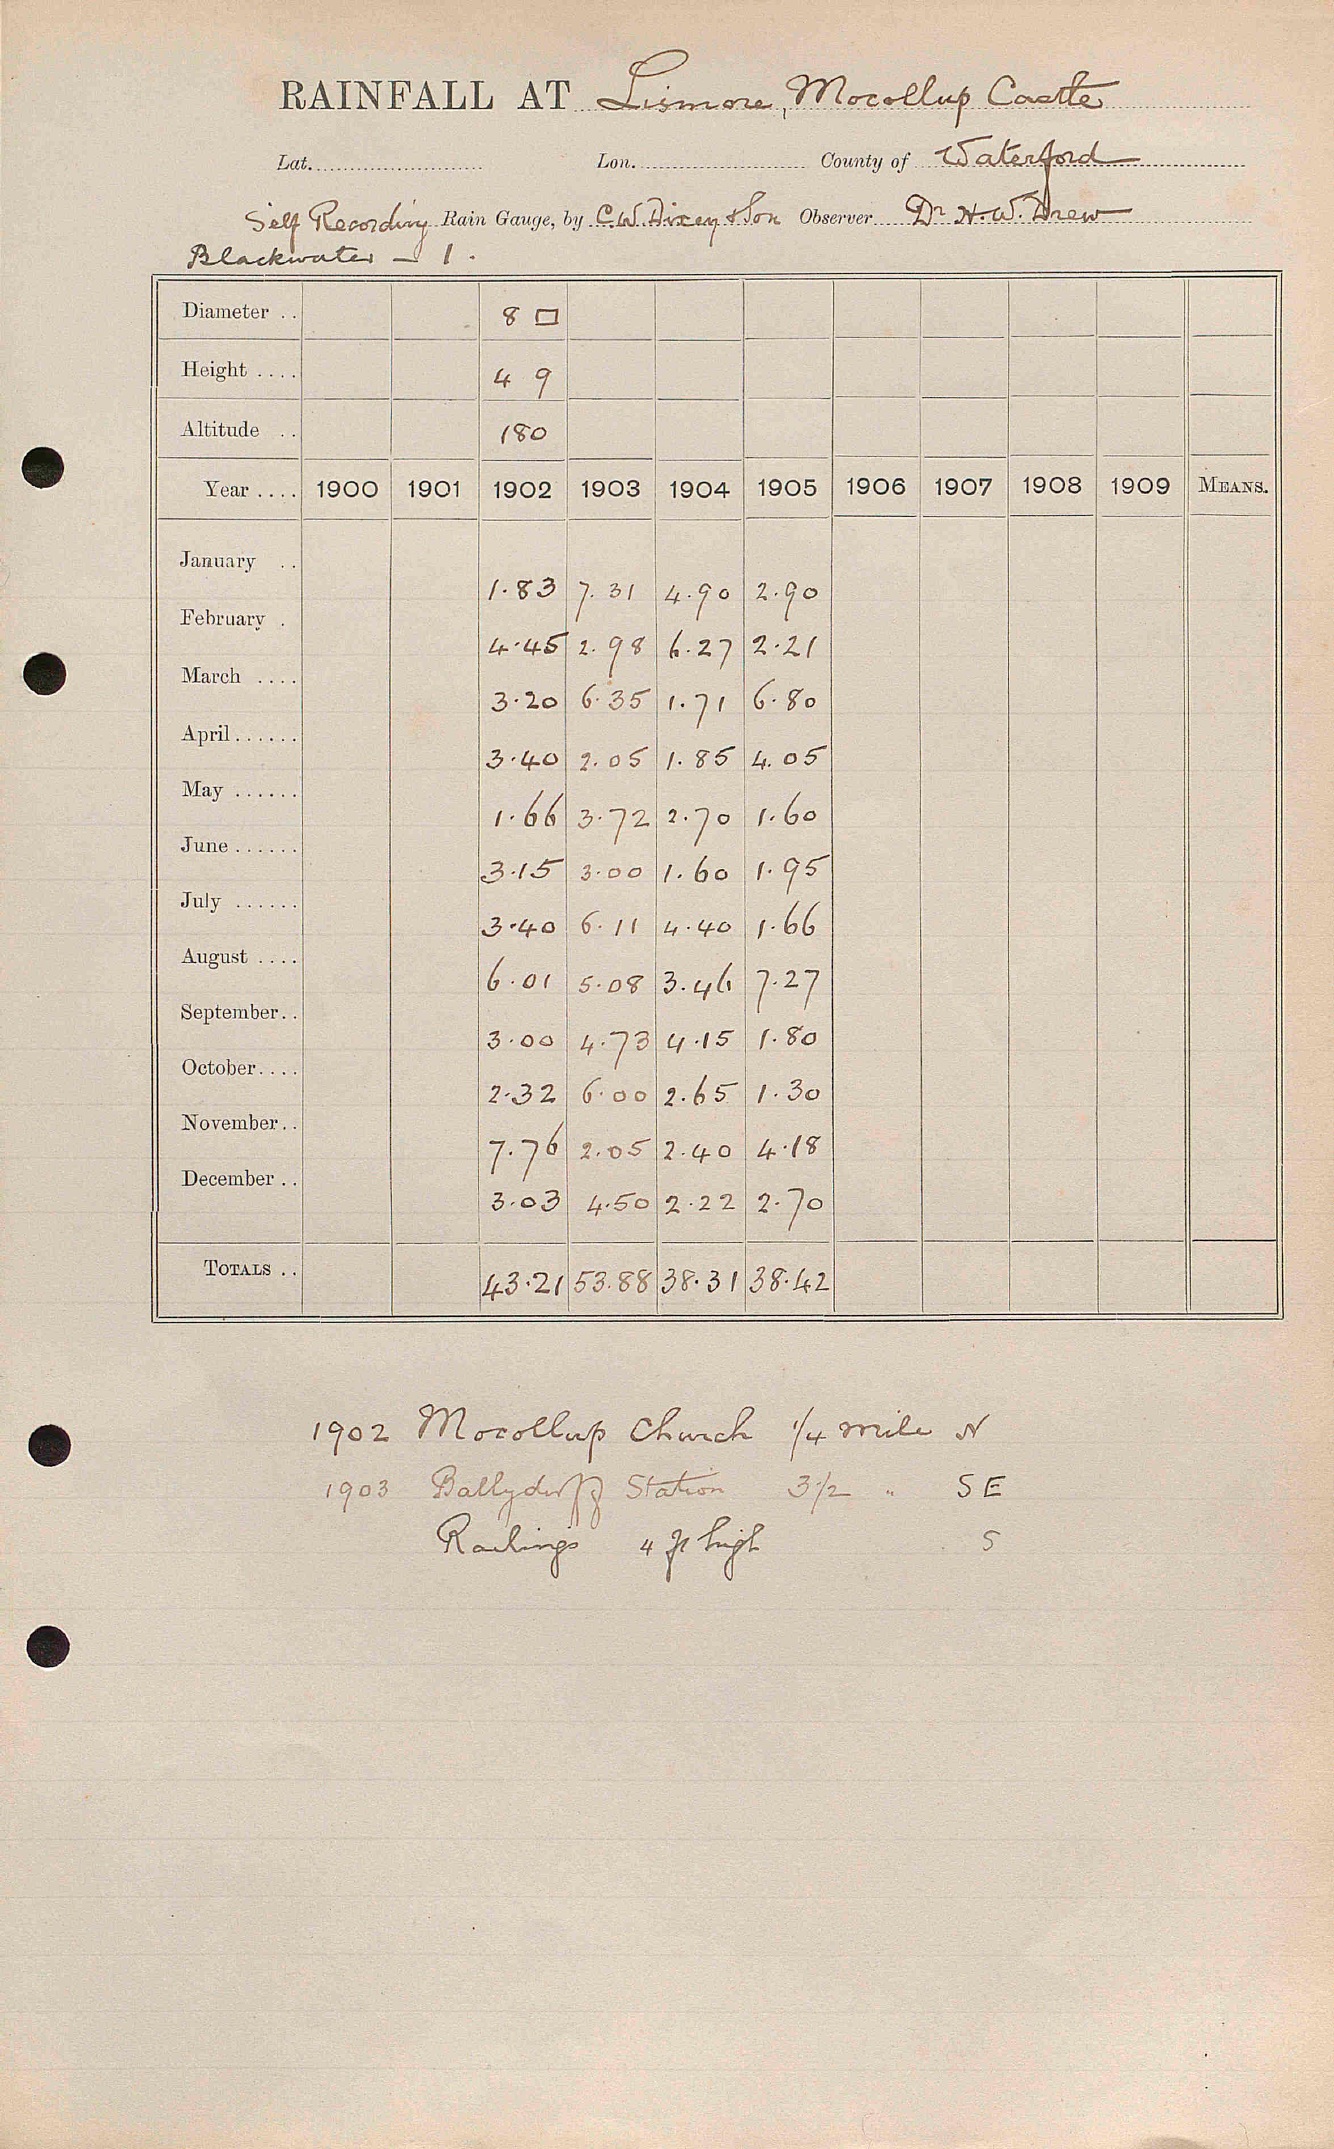 RAINFALL AT Lismore, Mocollup Castle
Lat. Lon. County of Waterford
Self Recording Rain Gauge, by C.W. Dixey & Son Observer Dr H. W. Drew
Blackwater — 1.
Diameter .. 8 □
Height .... 4 9
Altitude .. 180
Year .... 1900 1901 1902 1903 1904 1905 1906 1907 1908 1909 MEANS.
January .. 1.83 7.31 4.90 2.90
February . 4.45 2.98 6.27 2.21
March .... 3.20 6.35 1.71 6.80
April...... 3.40 2.05 1.85 4.05
May ...... 1.66 3.72 2.70 1.60
June ...... 3.15 3.00 1.60 1.95
July ...... 3.40 6.11 4.40 1.66
August .... 6.01 5.08 3.46 7.27
September.. 3.00 4.73 4.15 1.80
October.... 2.32 6.00 2.65 1.30
November.. 7.76 2.05 2.40 4.18
December .. 3.03 4.50 2.22 2.70
TOTALS .. 43.21 53.88 38.31 38.42
1902 Mocollup Church 1/4 mile N
1903 Ballyduff Station 3 1/2 " SE
Railings 4 ft high S